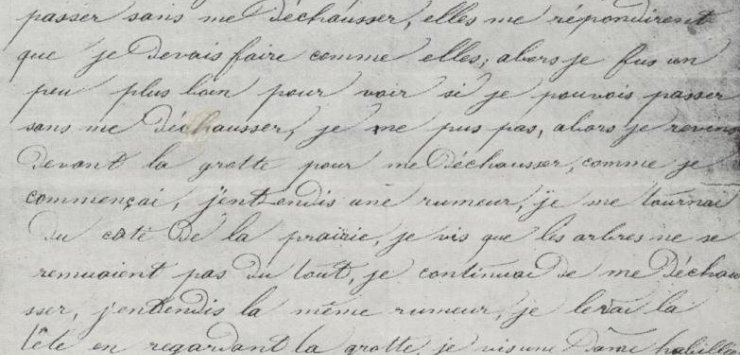 passer sans me déchausser, elles me répondirent
que je devais faire comme elles; alors je fus un
peu plus loin pour voir si je pouvois passer
sans me déchausser, je ne pus pas, alors je revens
devant la grotte pour me déchausser, comme je
commençai, j'entendis une rumeur, je me tournai
du coté de la prairie, je vis que les arbres ne se
remuaient pas du tout, je continuai de me déchau
sser, j'entendis la même rumeur, je levai la
tête en regardant la grotte, je vis une Dame habillée